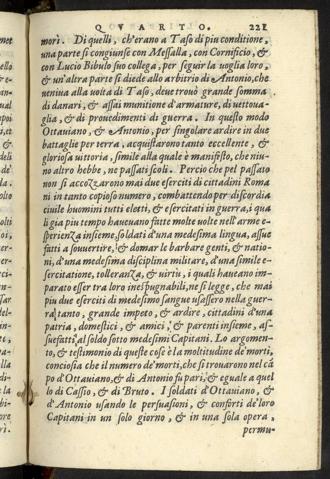 QVARTO. 221
mori. Di quelli, ch'erano a Taso di piu conditione,
una parte si congiunse con Messalla, con Cornificio, &
con Lucio Bibulo suo collega, per seguir la voglia loro,
& un'altra parte si diede allo arbitrio di Antonio, che
ueniua alla volta di Taso, deue trovò grande somma
di danari, & assai munitione d'armature, di vettoua-
glia, & di prouedimenti di guerra. In questo modo
Ottauiano, & Antonio, per singolare ardire in due
battaglie per terra, acquistarono tanto eccellente, &
gloriosa uittoria, simile alla quale è manifesto, che niu-
no altro hebbe, ne passati secoli. Percio che pel passato
non si accozzarono mai due eserciti di cittadini Roma
ni in tanto copioso numero, combattendo per discordia
ciuile huomini tutti eletti, & esercitati in guerra, i qua
li gia piu tempo haueuano fatte molte volte nell'arme e-
sperienza insieme, soldati d'una medesima lingua, assue
fatti a souuertire, & domar le barbare genti, & natio-
ni, d'una medesima disciplina militare, d'una simile e-
sercitatione, tolleranza, & uirtù, i quali haueano im-
parato esser tra loro inespugnabili, ne si legge, che mai
piu due eserciti di medesimo sangue usassero nella guer-
ra tanto, grande impeto, & ardire, cittadini d'una
patria, domestici, & amici, & parenti insieme, as-
suefatti al soldo sotto medesimi Capitani. Lo argomen-
to, & testimonio di queste cose è la moltitudine de'morti,
conciosia che il numero de'morti, che si trouarono nel cā
po d'Ottauiano, & di Antonio fu pari, & eguale a quel
lo di Cassio, & di Bruto. I soldati d'Ottauiano, &
d'Antonio usando le persuasioni, & conforti de'loro
Capitani in un solo giorno, & in una sola opera,
permu-